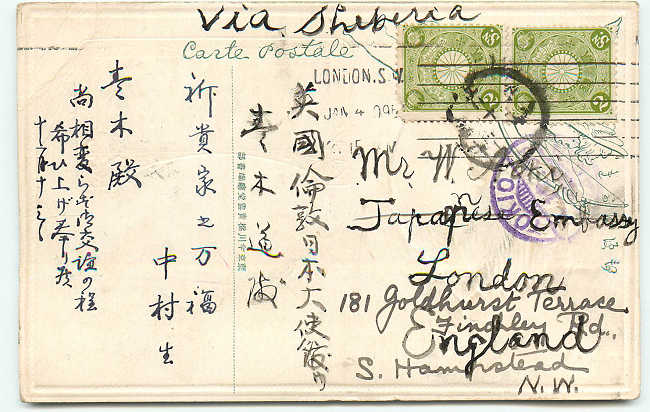 Via Sheberia
Carte Postale
LONDON. S.W.
JAN 4
Mr. W. Aoki
Japanese Embassy
London
England
181 Goldhurst Terrace
Finchley Rd.
S. Hampstead
N.W.
TOKIO
英國倫敦日本大使館
青木
祈貴家之万福
中村生
青木殿
尚相変らず御交誼の程
希ひ上げ奉り候